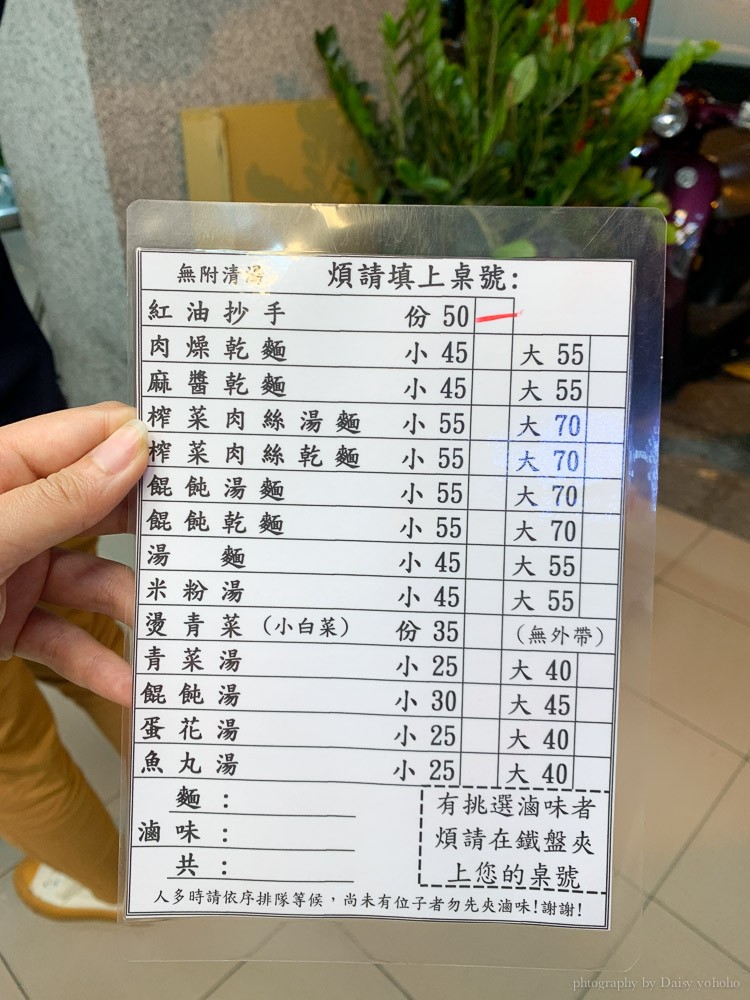 無附清湯 煩請填上桌號:
紅油抄手 份 50
肉燥乾麵 小 45 大 55
麻醬乾麵 小 45 大 55
榨菜肉絲湯麵 小 55 大 70
榨菜肉絲乾麵 小 55 大 70
餛飩湯麵 小 55 大 70
餛飩乾麵 小 55 大 70
湯 麵 小 45 大 55
米粉湯 小 45 大 55
燙青菜(小白菜) 份 35 (無外帶)
青菜湯 小 25 大 40
餛飩湯 小 30 大 45
蛋花湯 小 25 大 40
魚丸湯 小 25 大 40
麵:
滷味:
共:
有挑選滷味者
煩請在鐵盤夾
上您的桌號
人多時請依序排隊等候,尚未有位子者勿先夾滷味!謝謝!
phtography by Daisy yohoho